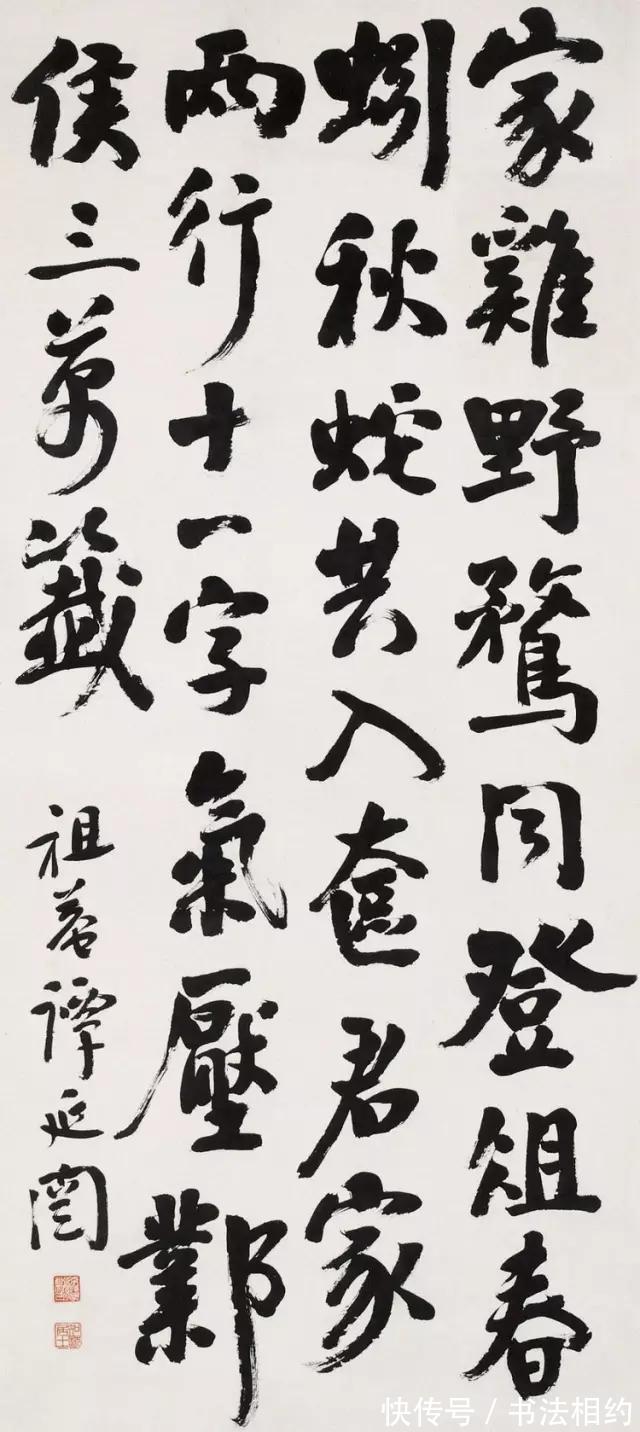 家雞野鶩同登俎春
蚓秋蛇共入奩君家
兩行十二字氣壓鄴
侯三萬籤
祖菴譚延闓
快传号／书法相约